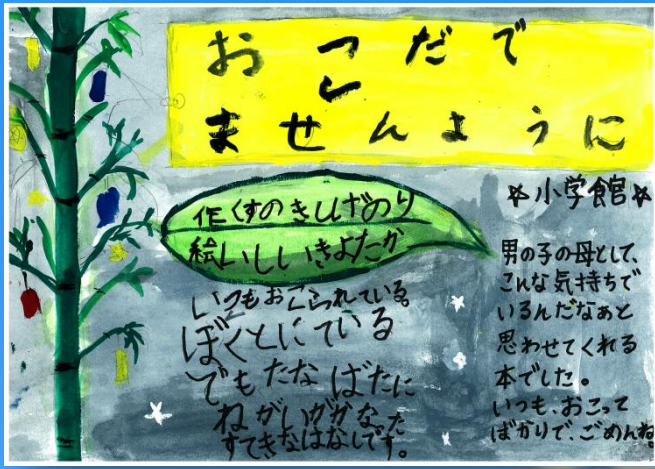 おこだで
ませんように
作くすのきしげのり
絵いしいきよたか
☆小学館☆
いつもおこられている。
ぼくとにている
でもたなばたに
ねがいがかなった
すてきなはなしです。
男の子の母として、
こんな気持ちで
いるんだなぁと
思わせてくれる
本でした。
いつも、おこって
ばかりで、ごめんね。